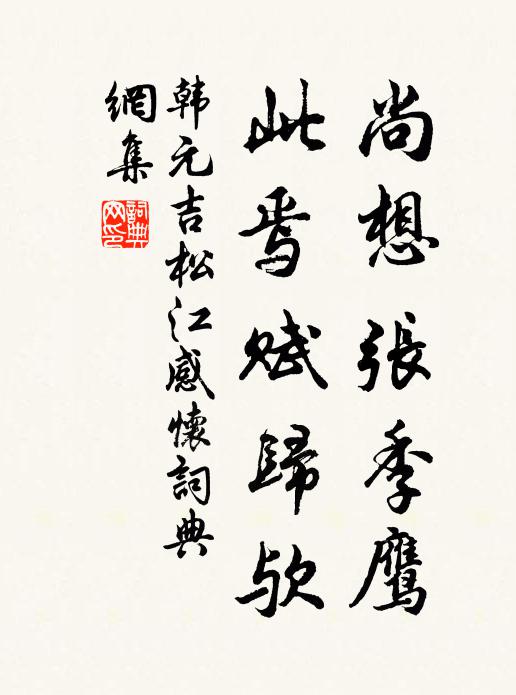 尚想張季鷹
此焉賦歸欤
韩元吉松江感懷詞典
網集
詞典網印